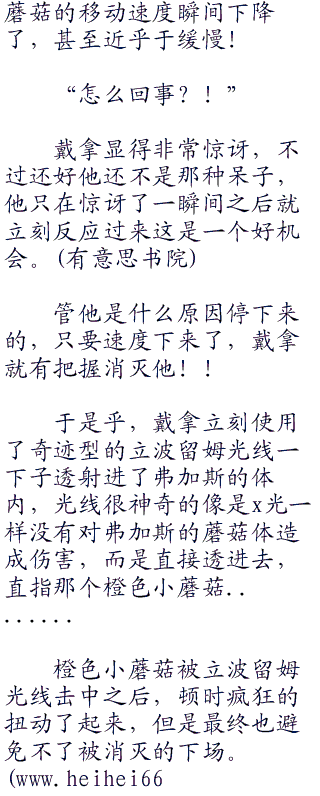 蘑菇的移动速度瞬间下降
了，甚至近乎于缓慢！
“怎么回事？！”
戴拿显得非常惊讶，不
过还好他还不是那种呆子，
他只在惊讶了一瞬间之后就
立刻反应过来这是一个好机
会。(有意思书院)
管他是什么原因停下来
的，只要速度下来了，戴拿
就有把握消灭他！！
于是乎，戴拿立刻使用
了奇迹型的立波留姆光线一
下子透射进了弗加斯的体
内，光线很神奇的像是x光一
样没有对弗加斯的蘑菇体造
成伤害，而是直接透进去，
直指那个橙色小蘑菇..
......
橙色小蘑菇被立波留姆
光线击中之后，顿时疯狂的
扭动了起来，但是最终也避
免不了被消灭的下场。
(www.heihei66